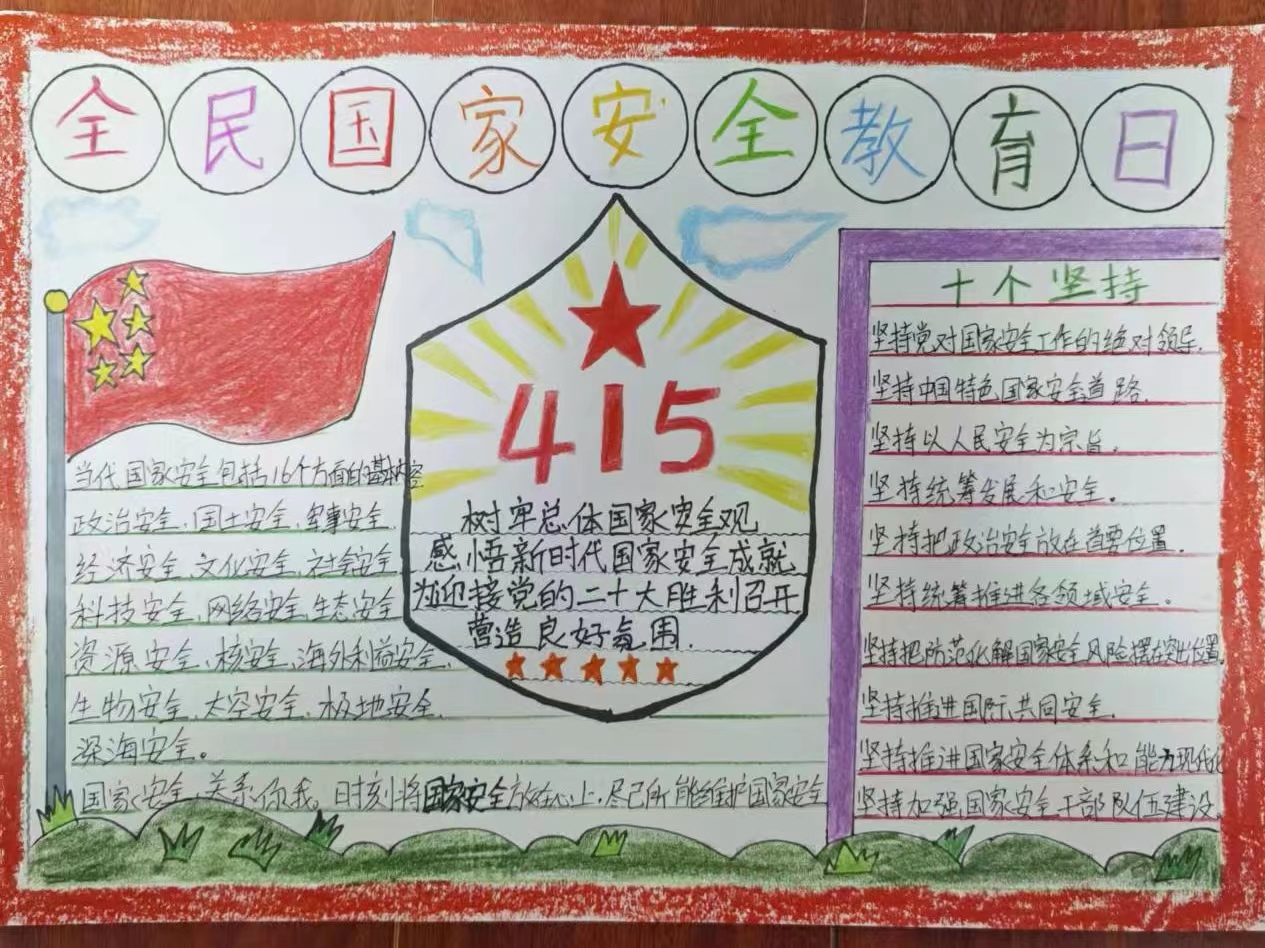 全民国家安全教育日
当代国家安全包括16个方面的基本内容
政治安全、国土安全、军事安全、
经济安全、文化安全、社会安全、
科技安全、网络安全、生态安全、
资源安全、核安全、海外利益安全、
生物安全、太空安全、极地安全、
深海安全。
国家安全,关系你我。时刻将国家安全放在心上,尽己所能维护国家安全
415
树牢总体国家安全观
感悟新时代国家安全成就
为迎接党的二十大胜利召开
营造良好氛围.
十个坚持
坚持党对国家安全工作的绝对领导.
坚持中国特色国家安全道路.
坚持以人民安全为宗旨。
坚持统筹发展和安全。
坚持把政治安全放在首要位置.
坚持统筹推进各领域安全。
坚持把防范化解国家安全风险摆在突出位置.
坚持推进国际共同安全.
坚持推进国家安全体系和能力现代化
坚持加强国家安全干部队伍建设.